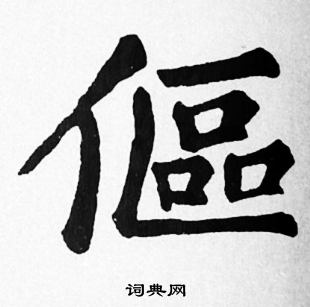 傴
词典网